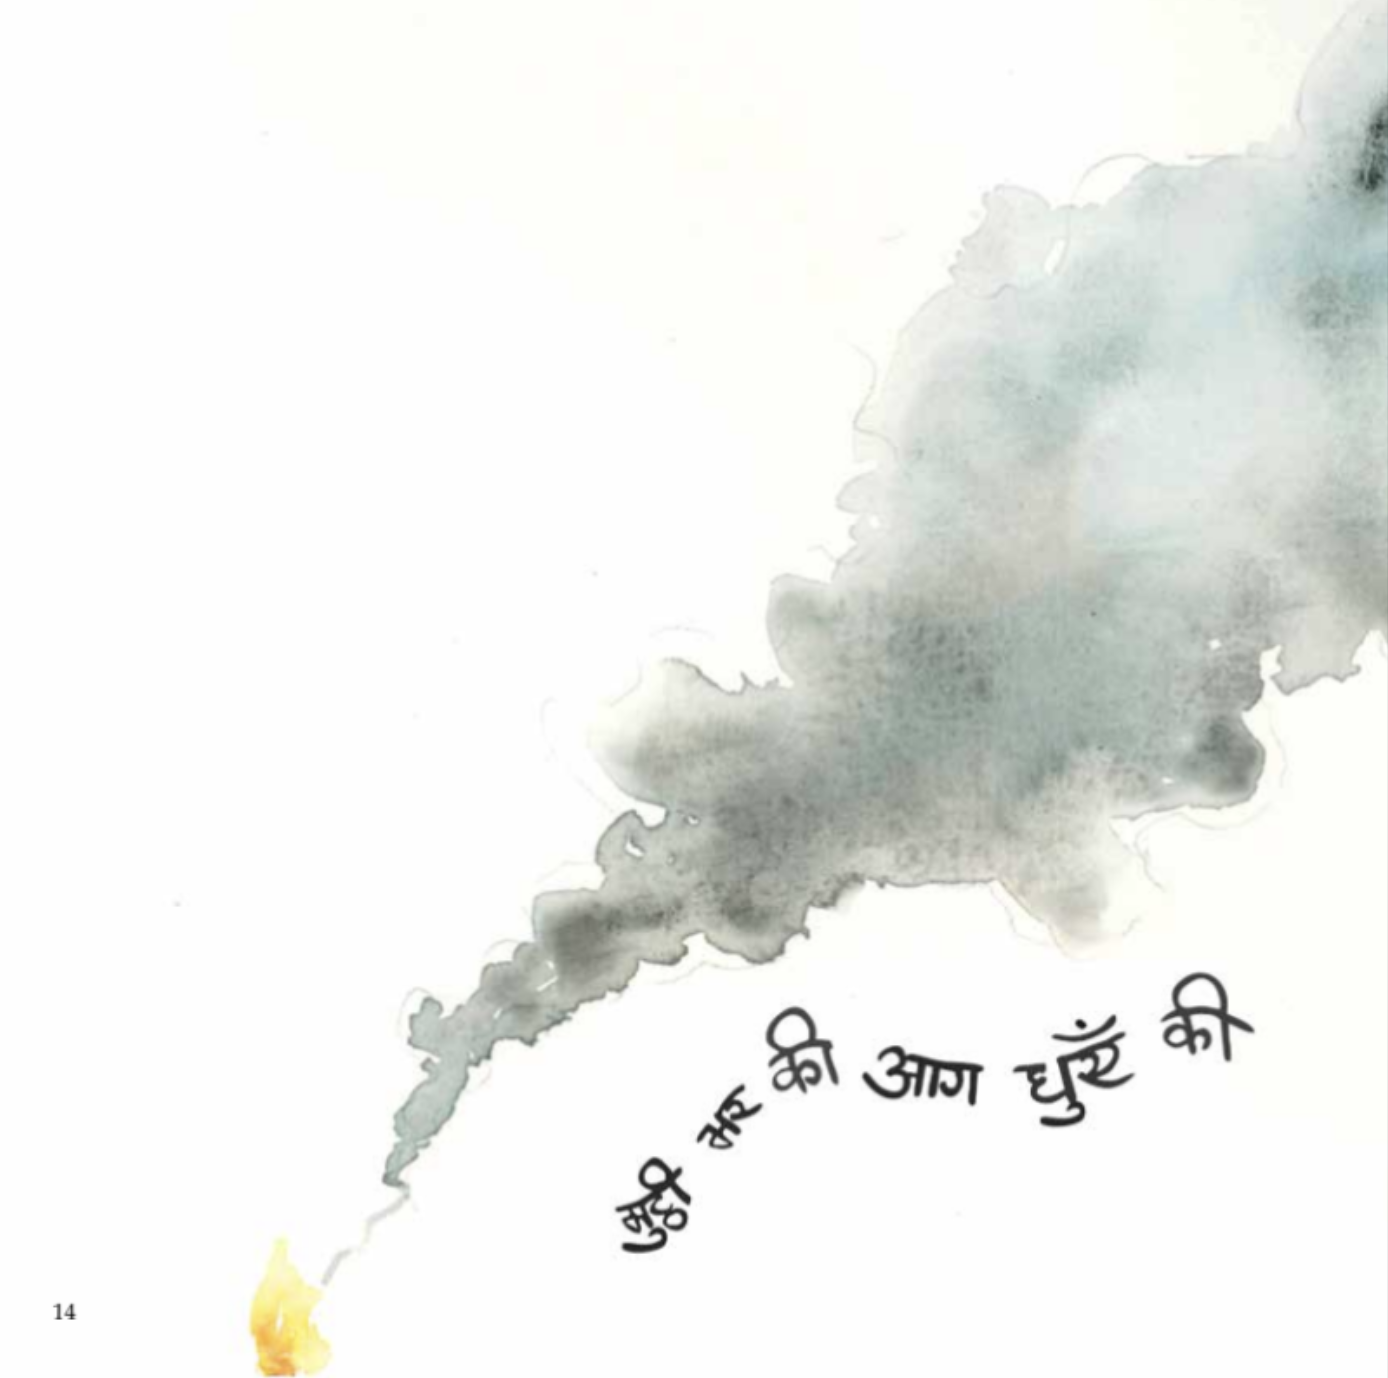 मुट्ठी भर की आग धुएँ की
14